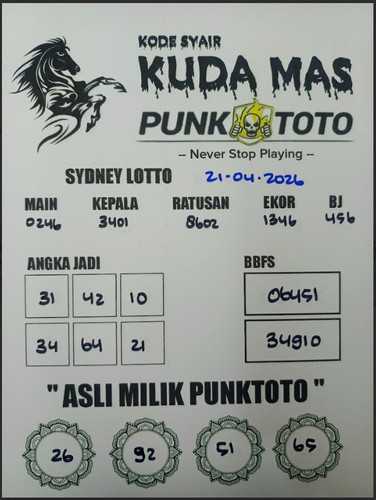 KODE SYAIR
KUDA MAS
PUNK TOTO
-- Never Stop Playing --
SYDNEY LOTTO 21-04-2026
MAIN KEPALA RATUSAN EKOR BJ
0246 3401 8602 1346 456
ANGKA JADI BBFS
31 42 10 06451
34 64 21 34910
" ASLI MILIK PUNKTOTO "
26 92 51 65